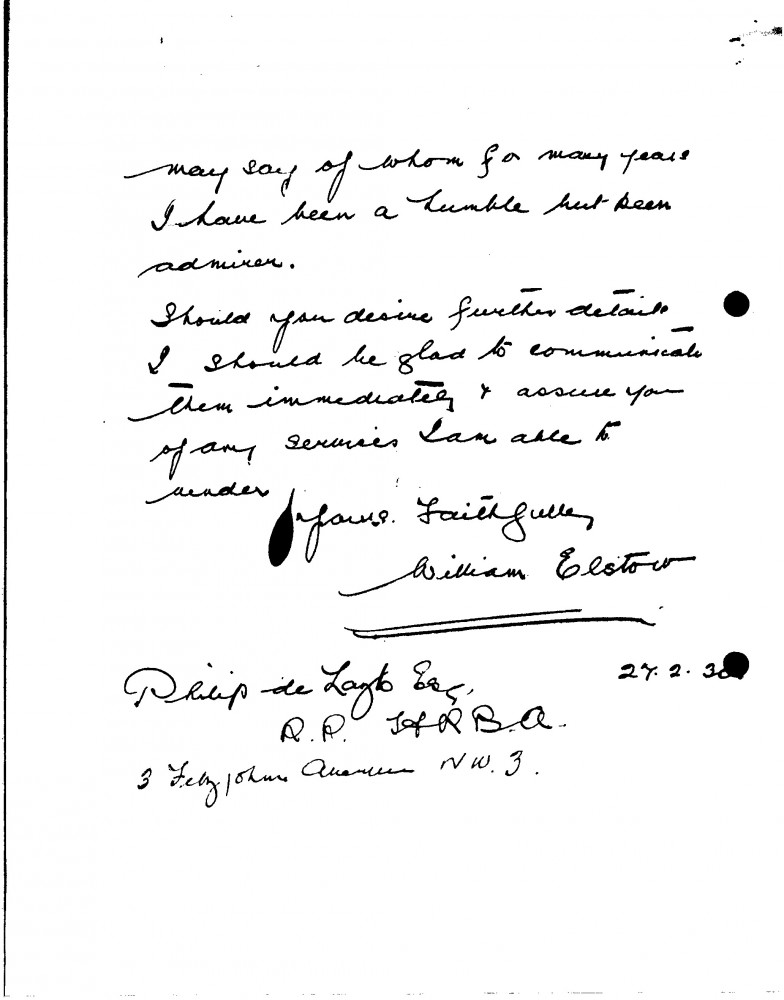 may say of whom for many years
I have been a humble but keen
admirer.
Should you desire further details
I should be glad to communicate
them immediately & assure you
of any services I am able to
render
Yours Faithfully
William Elstow
Philip de Laszlo Esq,
27. 2. 30
R.P. H R B A.
3 Fitzjohns Avenue N W. 3.